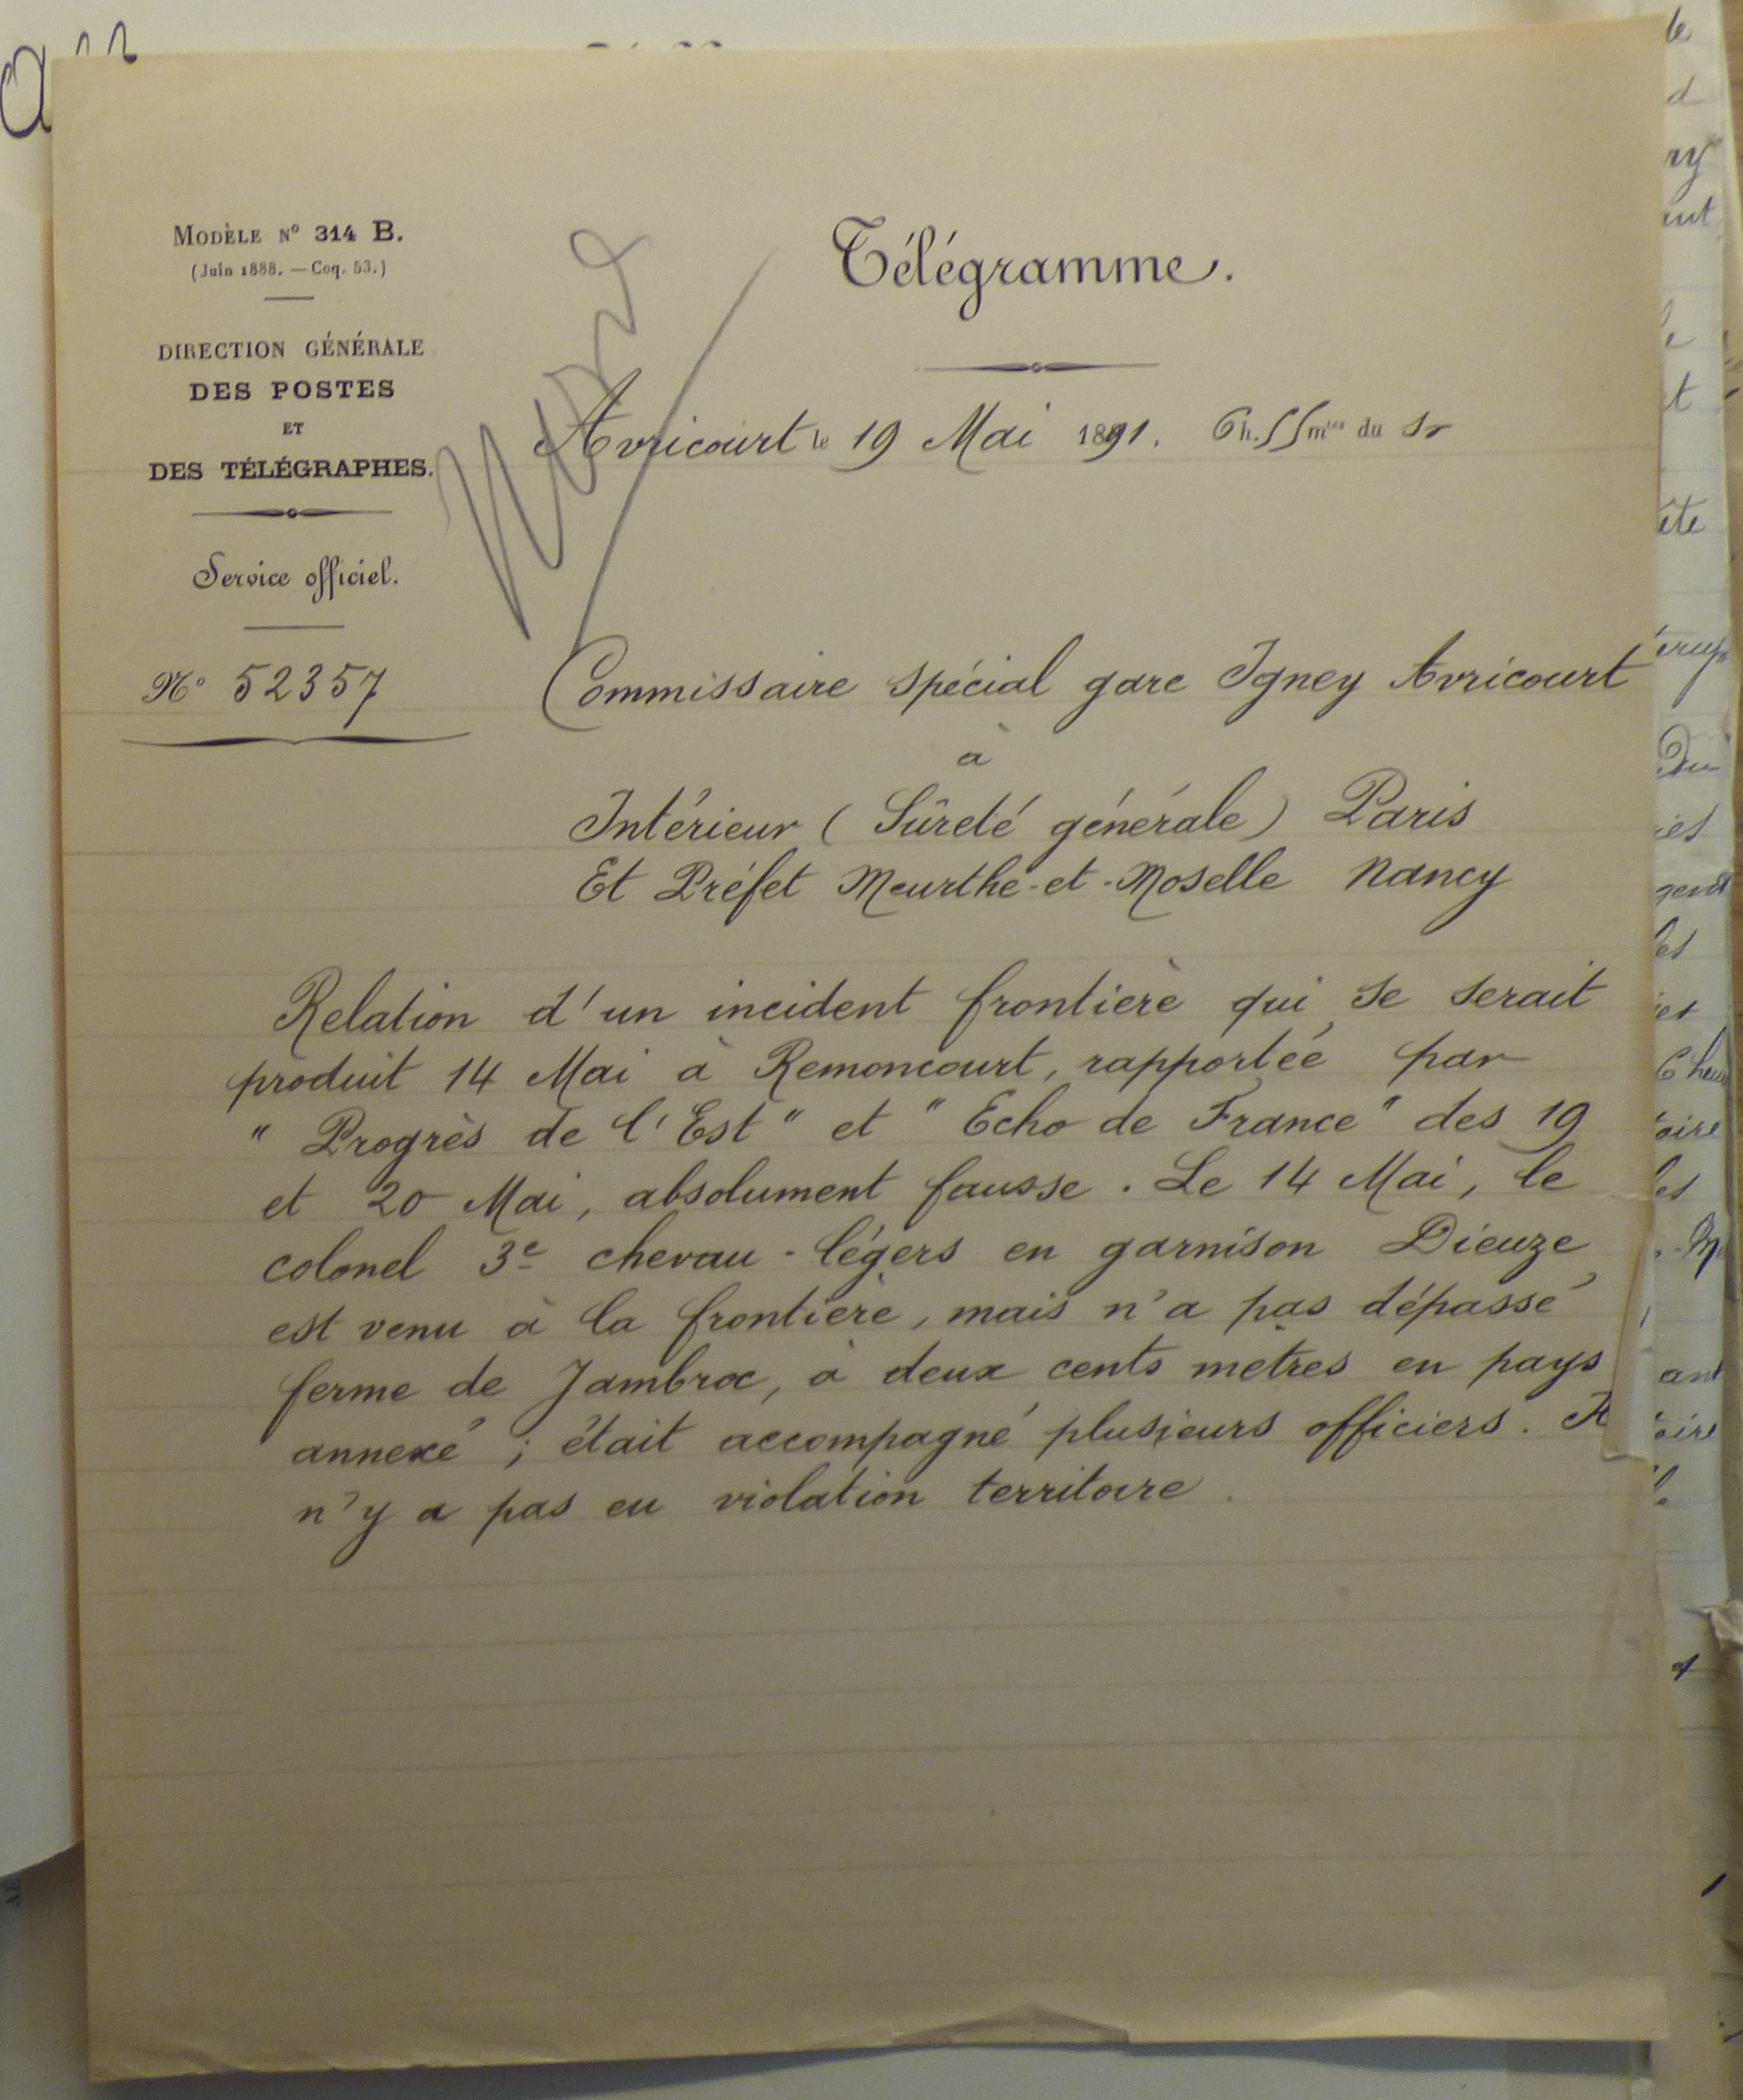 Modèle N° 314 B.
(Juin 1888. — Coq. 53.)
DIRECTION GÉNÉRALE
DES POSTES
ET
DES TÉLÉGRAPHES.
Service officiel.
N° 52357
Télégramme.
Nord
Avricourt le 19 Mai 1891. 6h. 55 mtes du Sr
Commissaire spécial gare Igney Avricourt
à
Intérieur (Sûreté générale) Paris
Et Préfet Meurthe-et-Moselle Nancy
Relation d'un incident frontière qui se serait
produit 14 Mai à Remoncourt, rapportée par
" Progrès de l'Est " et " Echo de France " des 19
et 20 Mai, absolument fausse. Le 14 Mai, le
colonel 3e chevau-légers en garnison Dieuze
est venu à la frontière, mais n'a pas dépassé
ferme de Jambroc, à deux cents mètres en pays
annexé ; était accompagné plusieurs officiers. Il
n'y a pas eu violation territoire.